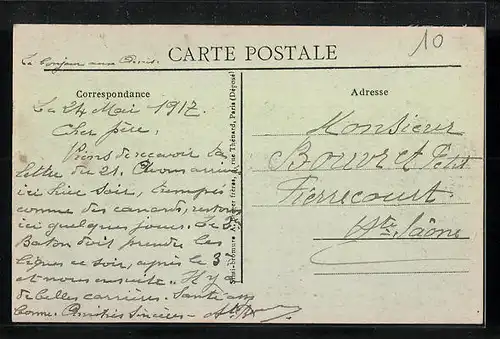 10
Le bonjour aux amis.
CARTE POSTALE
Correspondance
Le 24 Mai 1917.
Cher père,
Viens de recevoir ta
lettre du 21. Avons
ici hier soir, trempés
comme des canards, restons
ici quelques jours. Le
Baton doit prendre les
lignes ce soir, après le 3e
et nous ensuite. Il y a
de belles carrières. Santé
bonne. Amitiés Sincères
frères, rue Thénard, Paris (Déposé)
Adresse
Monsieur
Bouvret
Fierrecourt
Hte Saône